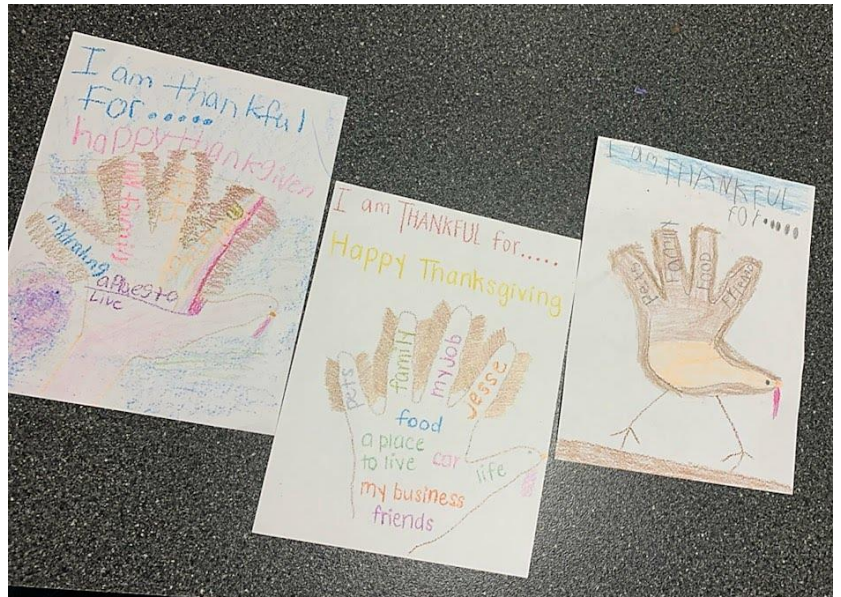 I am thankful
For.....
happy thanksgiven
my family
aPlaesto
Live
I am THANKFUL for.....
Happy Thanksgiving
pets
family
my job
Jesse
food
a place
to live
car
life
my business
friends
I am THANKFUL
for.....
Pets
Family
Food
Friends